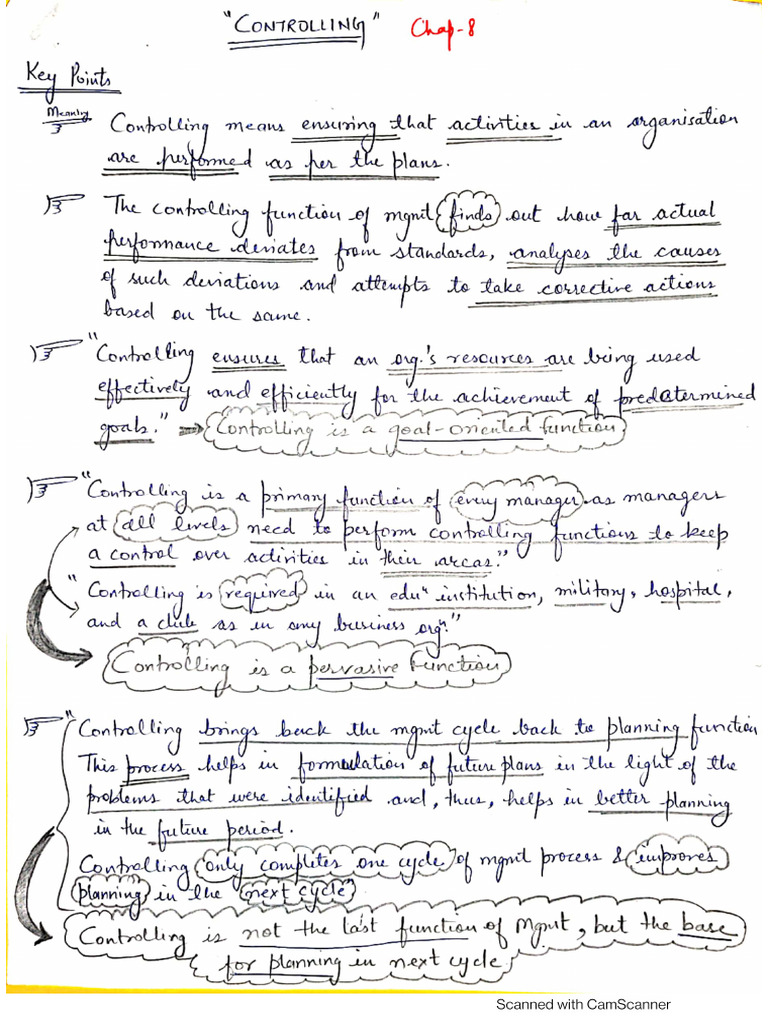 "CONTROLLING" Chap-8
Key Points
Meaning
Controlling means ensuring that activities in an organisation
are performed as per the plans.
The controlling function of mgmt finds out how far actual
performance deviates from standards, analyses the causes
of such deviations and attempts to take corrective actions
based on the same.
"Controlling ensures that an org.'s resources are being used
effectively and efficiently for the achievement of predetermined
goals." Controlling is a goal-oriented function
"Controlling is a primary function of every manager as managers
at all levels need to perform controlling functions to keep
a control over activities in their areas."
"Controlling is required in an eduⁿ institution, military, hospital,
and a club as in any business orgⁿ."
Controlling is a pervasive function
"Controlling brings back the mgmt cycle back to planning function
This process helps in formulation of future plans in the light of the
problems that were identified and, thus, helps in better planning
in the future period.
Controlling only completes one cycle of mgmt process & improves
planning in the next cycle"
Controlling is not the last function of Mgmt, but the base
for planning in next cycle.
Scanned with CamScanner